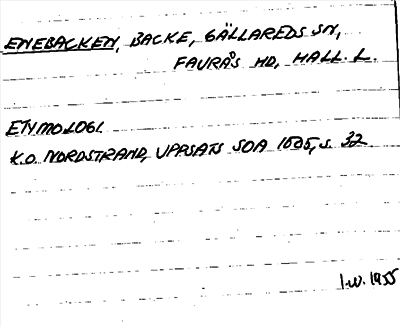 ENEBACKEN, BACKE, GÄLLAREDS SN,
FAURÅS HD, HALL. L.
ETYMOLOGI.
K.O. NORDSTRAND, UPPSATS SOA 1505, S. 32
I.W. 1955